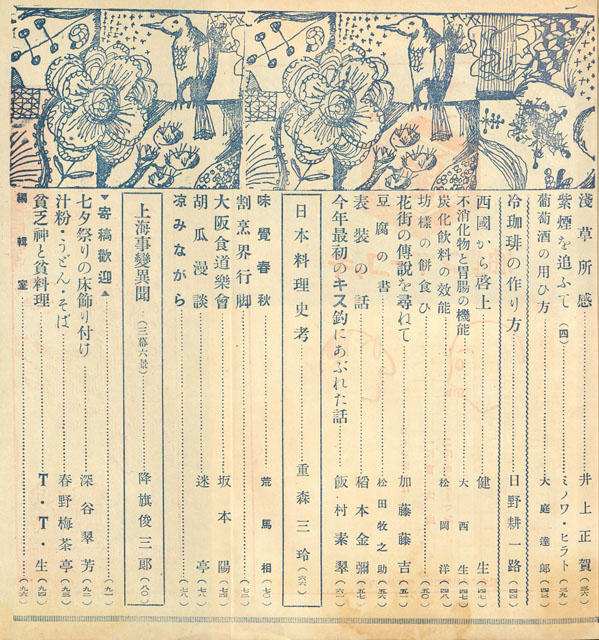 淺草所感……井上正賀(三六)
紫煙を追ふて(四)……ミノワ・ヒラト(三九)
葡萄酒の用ひ方……大庭達郎(四三)
冷珈琲の作り方……日野耕一路(四四)
西國から啓上……健生(四七)
不消化物と胃腸の機能……大西生(四八)
炭化飲料の效能……松岡洋(四九)
坊樣の餅食ひ……(五〇)
花街の傳説を尋ねて……加藤藤吉(五一)
豆腐の書……松田牧之助(五六)
表裝の話……稻本金彌(五七)
今年最初のキス釣にあぶれた話……飯村素翠(六一)
日本料理史考……重森三玲(六六)
味覺春秋……荒馬相(七〇)
割烹界行脚……(七三)
大阪食道樂會……坂本陽(七四)
胡瓜漫談……迷亭(七八)
凉みながら……(七八)
上海事變異聞(三幕六景)……降旗俊三郎(八〇)
▼寄稿歡迎▲……(九一)
七夕祭りの床飾り付け……深谷翠芳(九二)
汁粉・うどん・そば……春野梅茶亭(九三)
貧乏神と貧料理……T・T・生(九四)
編輯室……(九六)